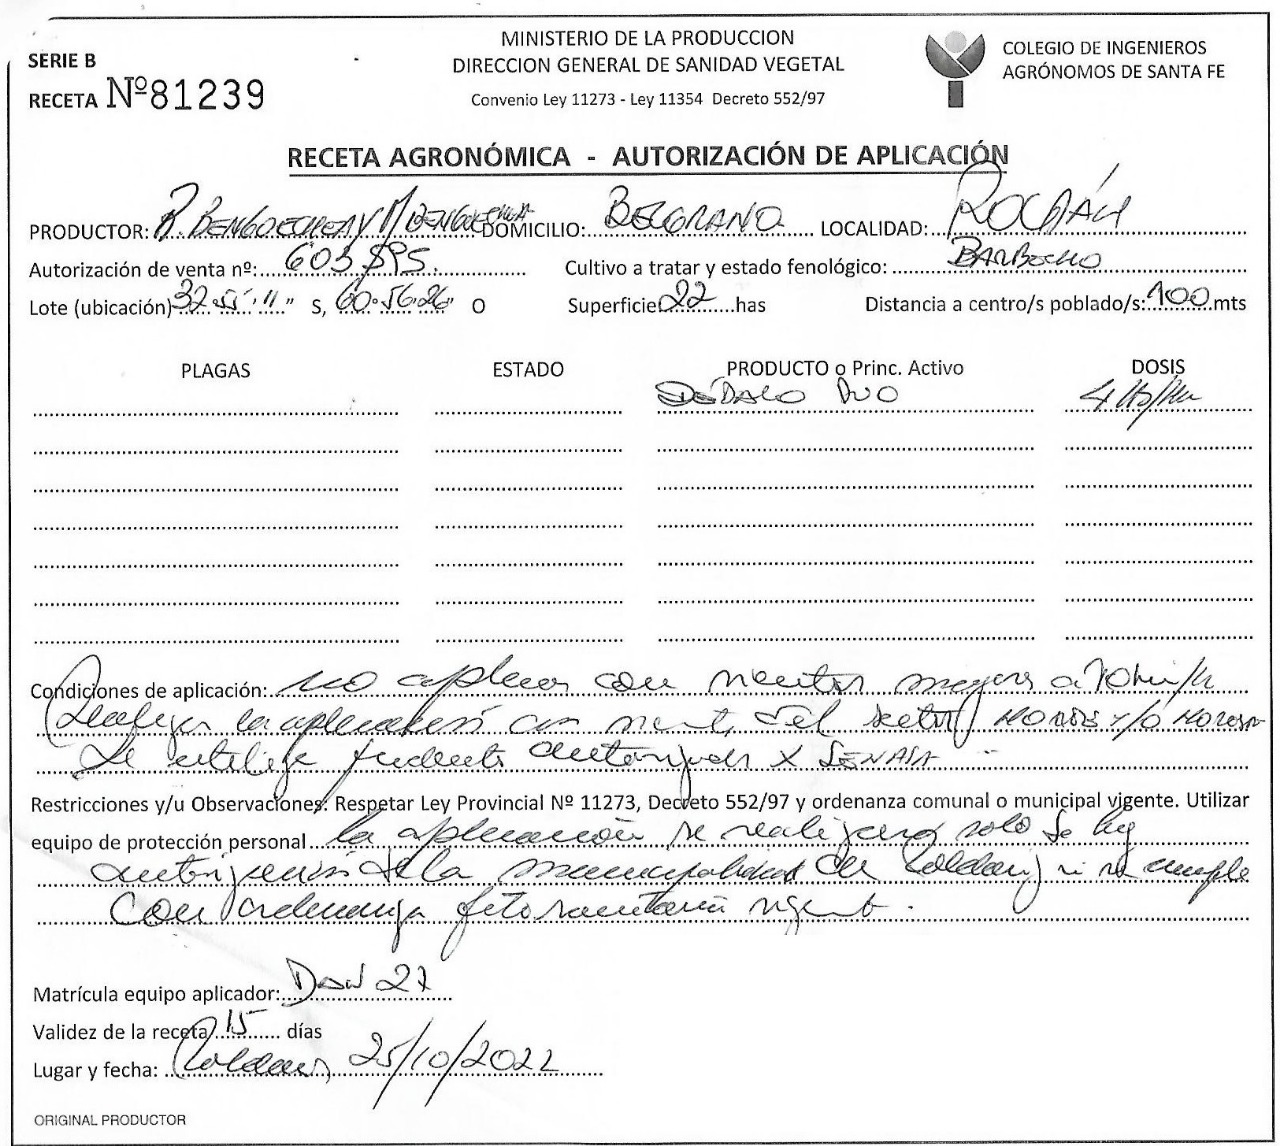 SERIE B
RECETA Nº81239
MINISTERIO DE LA PRODUCCION
DIRECCION GENERAL DE SANIDAD VEGETAL
Convenio Ley 11273 - Ley 11354 Decreto 552/97
COLEGIO DE INGENIEROS
AGRÓNOMOS DE SANTA FE
RECETA AGRONÓMICA - AUTORIZACIÓN DE APLICACIÓN
PRODUCTOR: R BENGOECHEA Y M BENGOECHEA DOMICILIO: BELGRANO LOCALIDAD: ROLDÁN
Autorización de venta nº: Cultivo a tratar y estado fenológico: BARBECHO
Lote (ubicación) 32.55'.11" S, 60.56.26" O Superficie 22 has Distancia a centro/s poblado/s: 100 mts
PLAGAS ESTADO PRODUCTO o Princ. Activo DOSIS
DÉDALO DUO 4 lts/ha
Condiciones de aplicación: no aplicar con vientos mayores a 10 km/h
Realizar la aplicación con viento del sector NORTE Y/O NOROESTE
Se utiliza producto autorizado X SENASA
Restricciones y/u Observaciones: Respetar Ley Provincial Nº 11273, Decreto 552/97 y ordenanza comunal o municipal vigente. Utilizar
equipo de protección personal la aplicación se realizara solo si hay
autorización de la municipalidad de Roldan y si se cumple
con ordenanza fitosanitaria vigente.
Matrícula equipo aplicador: 27
Validez de la receta 15 días
Lugar y fecha: Roldan, 25/10/2022
ORIGINAL PRODUCTOR